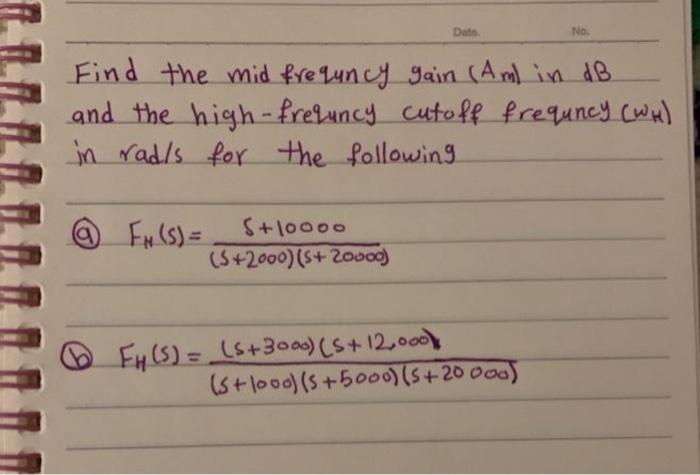 Date. No.
Find the mid frequncy gain (Am) in dB
and the high-frequncy cutoff frequncy (WH)
in rad/s for the following
(a) FH(S) = S+10000
(S+2000)(S+20000)
(b) FH(S) = (S+3000)(S+12,000)
(S+1000)(S+5000)(S+20000)